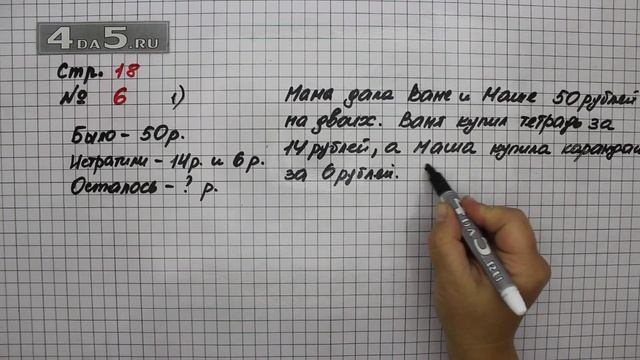 4DA5.RU
Стр. 18
№ 6 1)
Было - 50р.
Истратили - 14р. и 6р.
Осталось - ? р.
Мама дала Ване и Маше 50 рублей
на двоих. Ваня купил тетрадь за
14 рублей, а Маша купила каранда
за 6 рублей.
4DA5.RU